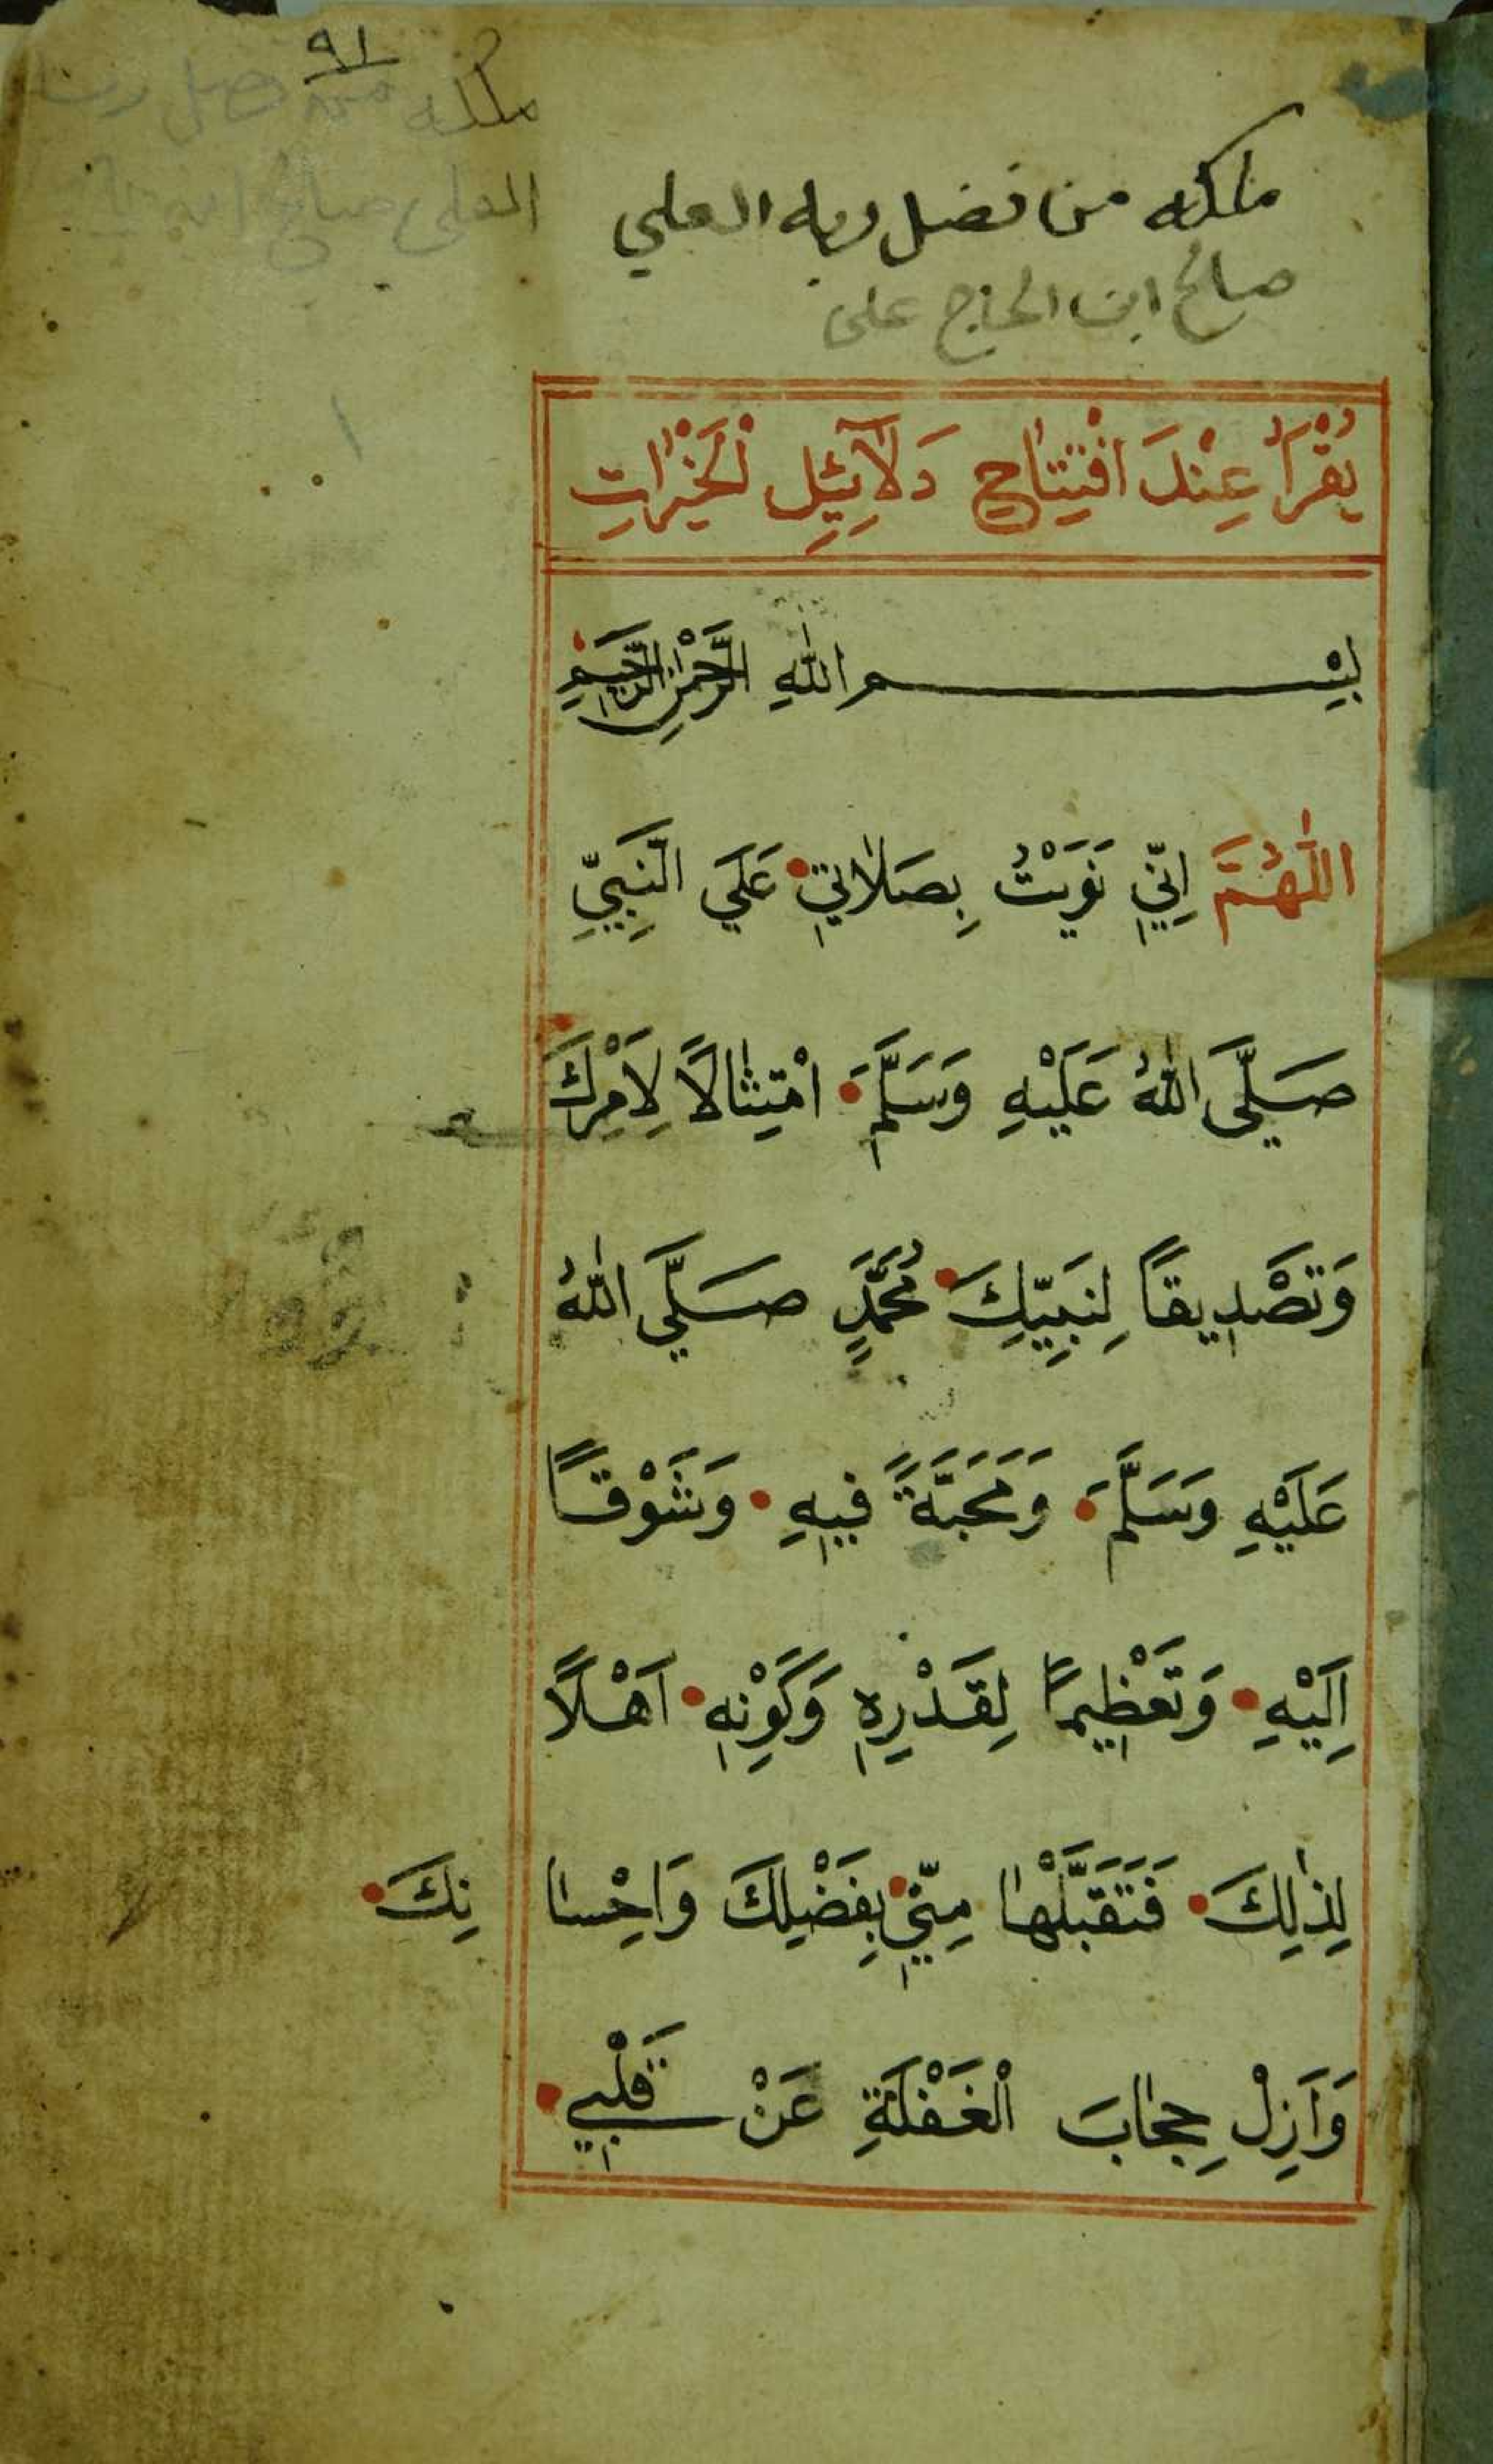 ٩١
ملكه من فضل ربه
العلي صالح ابن
ملكه من فضل ربه العلي
صالح ابن الحاج على
١
يُقْرَأُ عِنْدَ افْتِتَاحِ دَلَآئِلِ لْخَيْرَاتِ
بِسْمِ اللّٰهِ الرَّحْمٰنِ الرَّحِيمِ
اَللّٰهُمَّ اِنِّي نَوَيْتُ بِصَلَاتِي عَلَي النَّبِيِّ
صَلَّى اللّٰهُ عَلَيْهِ وَسَلَّمَ امْتِثَالًا لِاَمْرِكَ
وَتَصْدِيقاً لِنَبِيِّكَ مُحَمَّدٍ صَلَّي اللّٰهُ
عَلَيْهِ وَسَلَّمَ وَمَحَبَّةً فِيهِ وَشَوْقاً
اِلَيْهِ وَتَعْظِيماً لِقَدْرِهِ وَكَوْنِهِ اَهْلًا
لِذٰلِكَ فَتَقَبَّلْهَا مِنِّي بِفَضْلِكَ وَاِحْسَا نِكَ
وَاَزِلْ حِجَابَ الْغَفْلَةِ عَنْ قَلْبِي